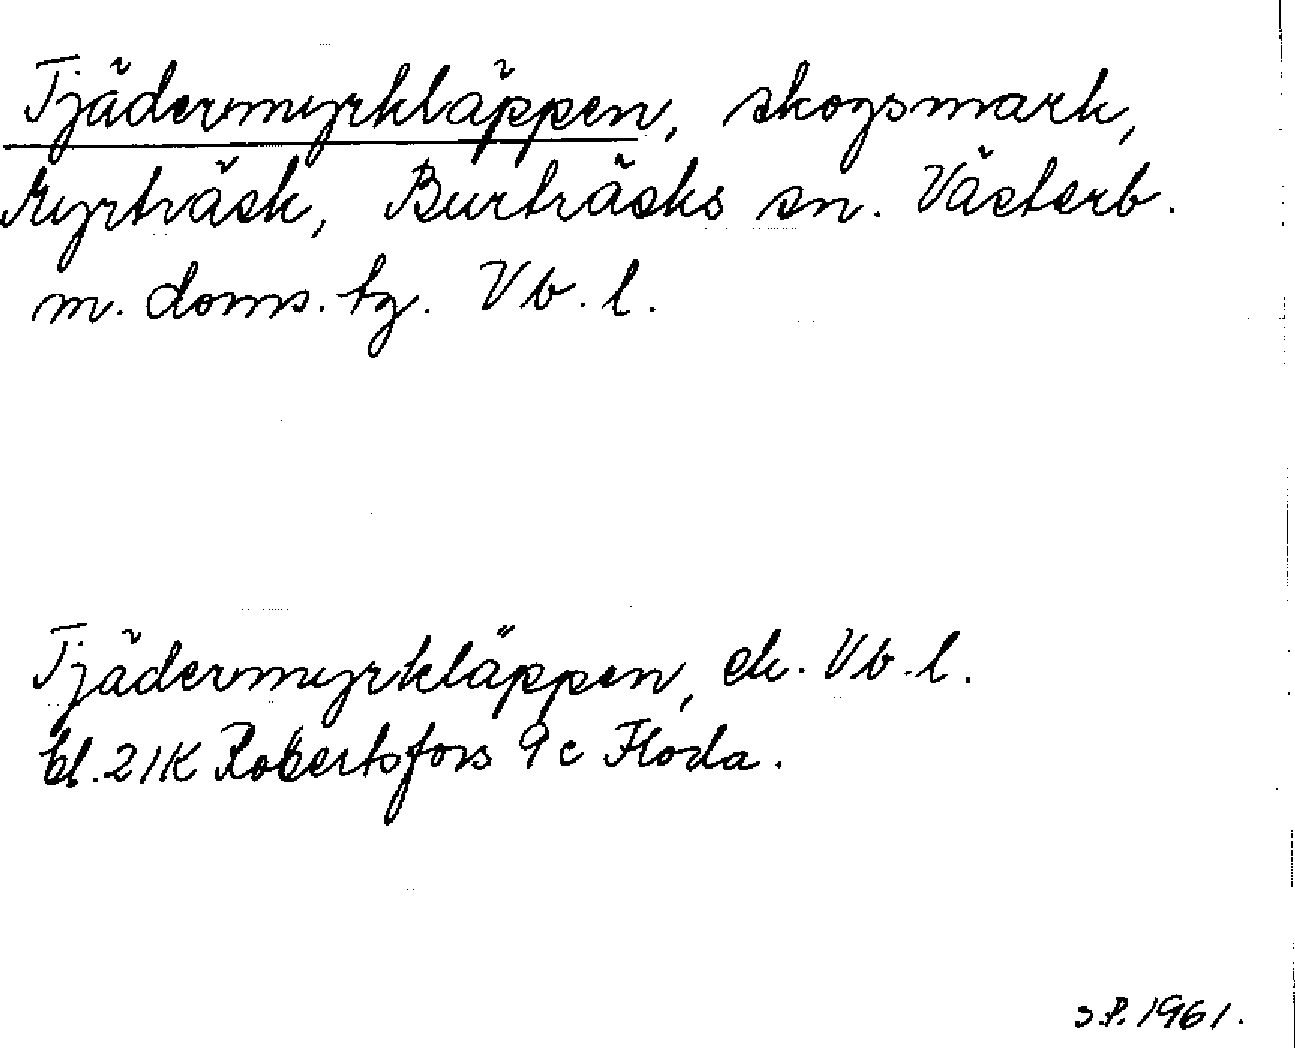 Tjädermyrkläppen, skogsmark,
Myrträsk, Burträsks sn. Västerb.
m. doms. tg. Vb. l.
Tjädermyrkläppen, ek. Vb. l.
bl. 21K Robertsfors 9c Floda.
S.P. 1961.